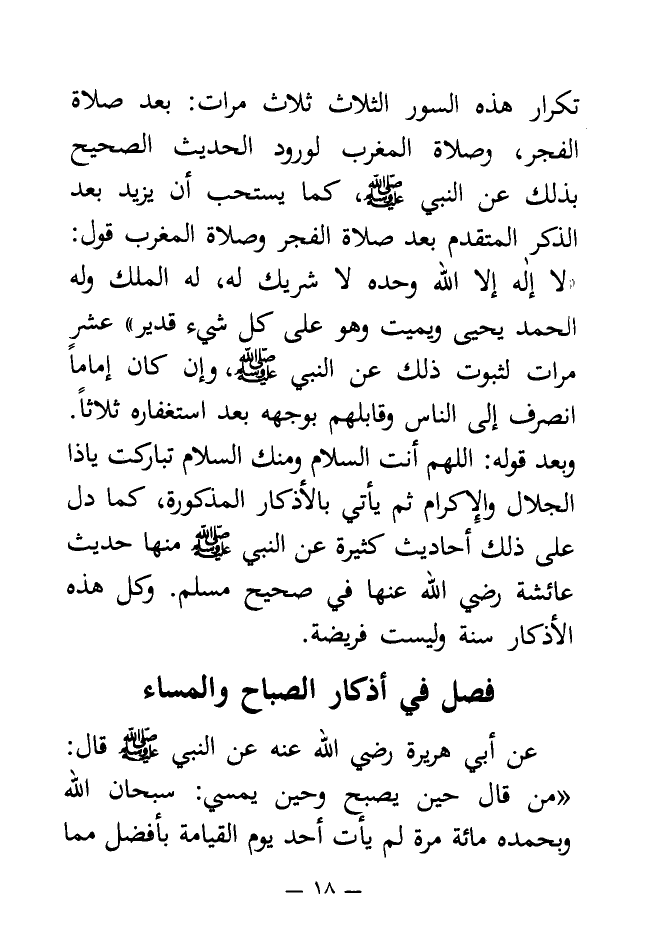 تكرار هذه السور الثلاث ثلاث مرات: بعد صلاة
الفجر، وصلاة المغرب لورود الحديث الصحيح
بذلك عن النبي ﷺ، كما يستحب أن يزيد بعد
الذكر المتقدم بعد صلاة الفجر وصلاة المغرب قول:
«لا إلٰه إلا الله وحده لا شريك له، له الملك وله
الحمد يحيى ويميت وهو على كل شيء قدير» عشر
مرات لثبوت ذلك عن النبي ﷺ، وإن كان إماماً
انصرف إلى الناس وقابلهم بوجهه بعد استغفاره ثلاثاً.
وبعد قوله: اللهم أنت السلام ومنك السلام تباركت ياذا
الجلال والإكرام ثم يأتي بالأذكار المذكورة، كما دل
على ذلك أحاديث كثيرة عن النبي ﷺ منها حديث
عائشة رضي الله عنها في صحيح مسلم. وكل هذه
الأذكار سنة وليست فريضة.
فصل في أذكار الصباح والمساء
عن أبي هريرة رضي الله عنه عن النبي ﷺ قال:
«من قال حين يصبح وحين يمسي: سبحان الله
وبحمده مائة مرة لم يأت أحد يوم القيامة بأفضل مما
— ١٨ —